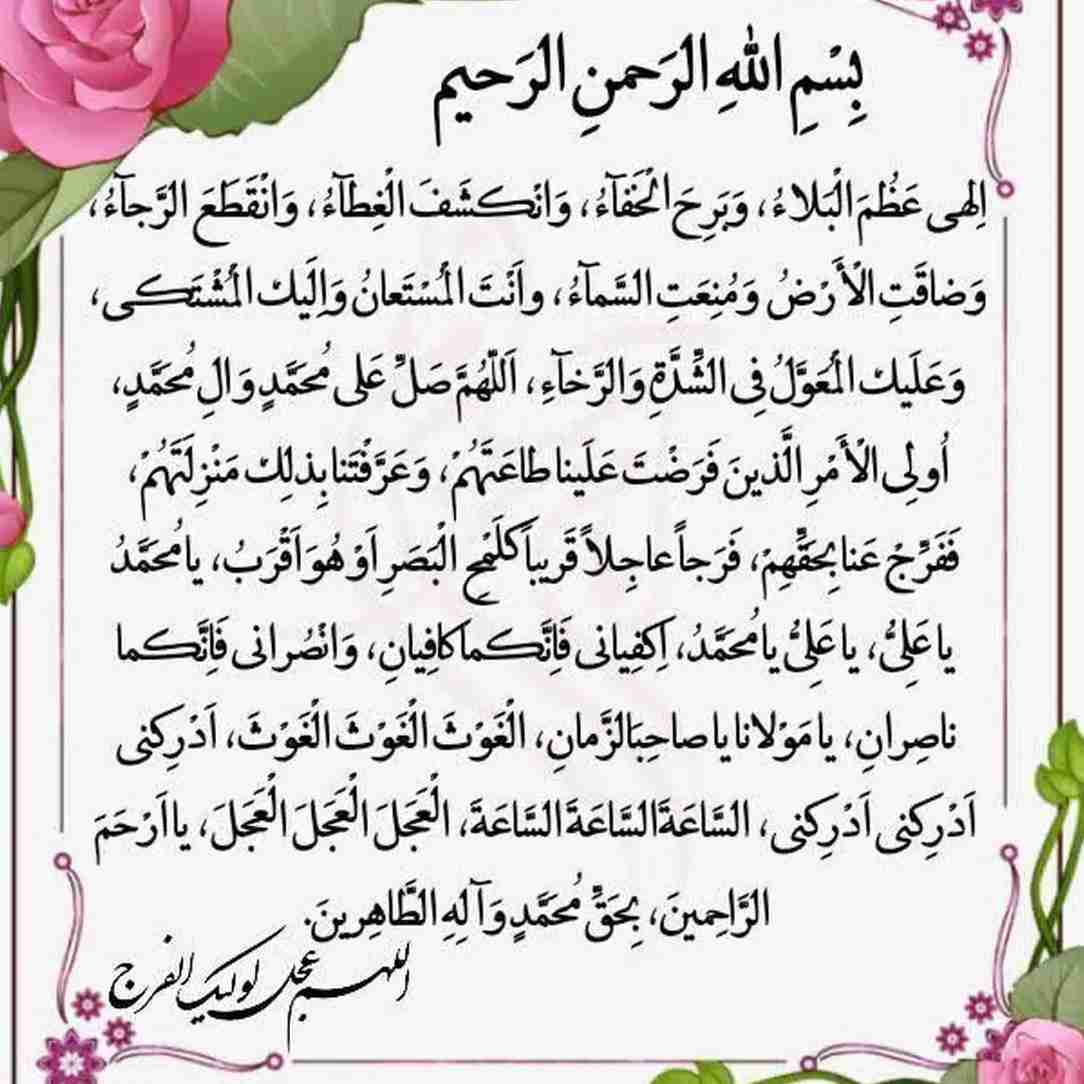 بِسْمِ اللهِ الرَحمنِ الرَحیم
اِلهی عَظُمَ الْبَلاءُ، وَبَرِحَ الْخَفآءُ، وَانْکَشَفَ الْغِطآءُ، وَانْقَطَعَ الرَّجآءُ،
وَضاقَتِ الْأَرْضُ وَمُنِعَتِ السَّمآءُ، واَنْتَ الْمُسْتَعانُ وَاِلَیك الْمُشْتَکی،
وَعَلَیك الْمُعَوَّلُ فِی الشِّدَّةِ وَالرَّخآءِ، اَللّهُمَّ صَلِّ عَلی مُحَمَّدٍ وَ الِ مُحَمَّدٍ،
اُولِی الْأَمْرِ الَّذینَ فَرَضْتَ عَلَینا طاعَتَهُمْ، وَعَرَّفْتَنا بِذلِك مَنْزِلَتَهُمْ،
فَفَرِّجْ عَنا بِحَقِّهِمْ، فَرَجاً عاجِلاً قَریباً کَلَمْحِ الْبَصَرِ اَوْ هُوَ اَقْرَبُ، یا مُحَمَّدُ
یا عَلِیُّ، یا عَلِیُّ یا مُحَمَّدُ، اِکفِیانی فَاِنَّکُما کافِیانِ، وَانْصُرانی فَاِنَّکُما
ناصِرانِ، یا مَوْلانا یا صاحِبَالزَّمانِ، الْغَوْثَ الْغَوْثَ الْغَوْثَ، اَدْرِکنی
اَدْرِکنی اَدْرِکنی، السَّاعَةَ السَّاعَةَ السَّاعَةَ، الْعَجَلَ الْعَجَلَ الْعَجَلَ، یا اَرْحَمَ
الرَّاحِمینَ، بِحَقِّ مُحَمَّدٍ وَآلِهِ الطَّاهِرینَ.
اللهم عجل لولیک الفرج